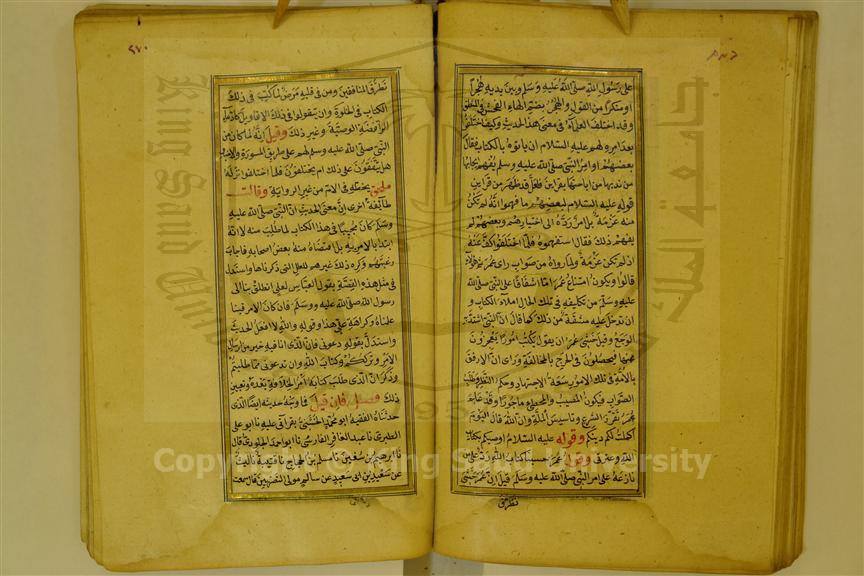 على رسول الله صلى الله عليه وسلم وبين يديه هُجرًا
او منكرًا من القول والهُجْر بضم الهاء الفحش في المنطق
وقد اختلف العلماء في معنى هذا الحديث وكيف اختلفوا
بعد امره لهم عليه السلام ان ياتوه بالكتاب فقال
بعضهم اوامر النبي صلى الله عليه وسلم يفهم ايجابها
من ندبها من اباحتها بقراين فلعل قد ظهر من قراين
قوله عليه السلام لبعضهم ما فهموا انه لم تكن
منه عزمة بل امر رده الى اختيارهم وبعضهم لم
يفهم ذلك فقال استفهموه فلما اختلفوا كف عنه
اذ لم يكن عزمة ولما رواه من صواب راى عمر ثم هؤلاء
قالوا ويكون امتناع عمر اما اشفاقا على النبي صلى الله
عليه وسلم من تكليفه في تلك الحال املاء الكتاب و
ان تدخل عليه مشقة من ذلك كما قال ان النبي اشتد به
الوجع وقيل خشي عمر ان يقول يكتب امورا يعجزون
عنها فيحصلون في الحرج بالمخالفة وراى ان الارفق
بالامة في تلك الامور سعة الاجتهاد وحكم النظر وطلب
الصواب فيكون المصيب والمخطئ ماجورا وقد علم
عمر تقرر الشرع وتاسيس الملة وان الله قال اليوم
اكملت لكم دينكم وقوله عليه السلام اوصيكم بكتاب
الله وعترتي وقول عمر حسبنا كتاب الله رد على من
نازعه لا على امر النبي صلى الله عليه وسلم وقيل ان عمر خشي
تطرق
٢٧٠
تطرق المنافقين ومن في قلبه مرض لما كتب في ذلك
الكتاب في الخلوة وان يتقولوا في ذلك الاقاويل كادعاء
الرافضة الوصية وغير ذلك وقيل انه كان من
النبي صلى الله عليه وسلم لهم على طريق المشورة والاختبار
هل يتفقون على ذلك ام يختلفون فلما اختلفوا تركه
وقالت
طائفة اخرى ان معنى الحديث ان النبي صلى الله عليه
وسلم كان مجيبا في هذا الكتاب لما طلب منه لا انه
ابتدا بالامر به بل اقتضاه منه بعض اصحابه فاجاب
رغبتهم وكره ذلك غيرهم للعلل التي ذكرناها واستدل
في مثل هذه القصة بقول العباس لعلي انطلق بنا الى
رسول الله صلى الله عليه ووسلم فان كان الامر فينا
علمناه وكراهة علي هذا وقوله والله لا افعل الحديث
واستدل بقوله دعوني فان الذي انا فيه خير من ارسال
الامر وترككم وكتاب الله وان تدعوني مما طلبتم
وذكر ان الذي طلب كتابة امر الخلافة بعده وتعيين
ذلك فصل فان قيل فما وجه حديثه ايضا الذي
حدثناه الفقيه ابو محمد الخشني بقراتي عليه نا ابو علي
الطبري نا عبد الغافر الفارسي نا ابو احمد الجلودي قال
نا ابرهيم بن سفين نا مسلم بن الحجاج نا قتيبة نا ليث
عن سعيد بن ابي سعيد عن سالم مولى النصريين قال سمعت
Copyright © King Saud University
King Saud University
جامعة الملك